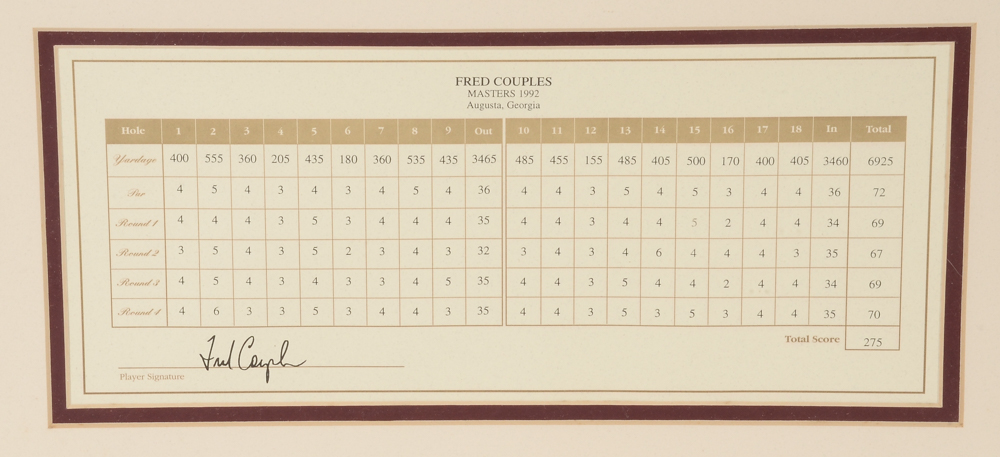 FRED COUPLES
MASTERS 1992
Augusta, Georgia
Hole 1 2 3 4 5 6 7 8 9 Out 10 11 12 13 14 15 16 17 18 In Total
Yardage 400 555 360 205 435 180 360 535 435 3465 485 455 155 485 405 500 170 400 405 3460 6925
Par 4 5 4 3 4 3 4 5 4 36 4 4 3 5 4 5 3 4 4 36 72
Round 1 4 4 4 3 5 3 4 4 4 35 4 4 3 4 4 5 2 4 4 34 69
Round 2 3 5 4 3 5 2 3 4 3 32 3 4 3 4 6 4 4 4 3 35 67
Round 3 4 5 4 3 4 3 3 4 5 35 4 4 3 5 4 4 2 4 4 34 69
Round 4 4 6 3 3 5 3 4 4 3 35 4 4 3 5 3 5 3 4 4 35 70
Total Score 275
Fred Couples
Player Signature